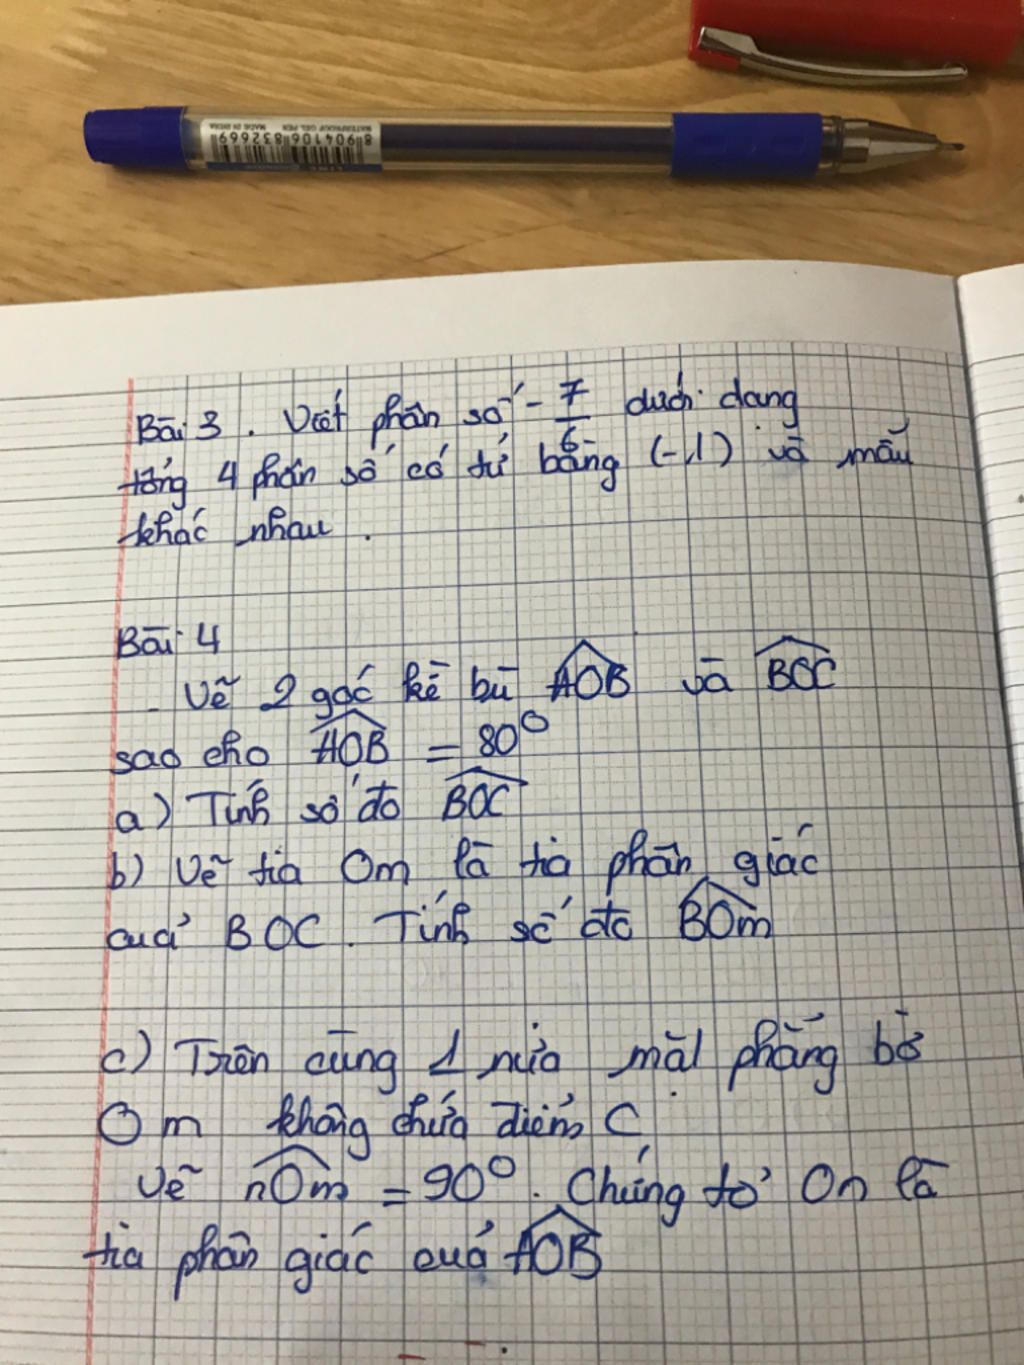 8904106832669
WATERPROOF GEL PEN
MADE IN INDIA
Bài 3. Viết phân số -7/6 dưới dạng
tổng 4 phân số có tử bằng (-1) và mẫu
khác nhau.
Bài 4
Vẽ 2 góc kề bù AOB và BOC
sao cho AOB = 80°
a) Tính số đo BOC
b) Vẽ tia Om là tia phân giác
của BOC. Tính số đo BOm
c) Trên cùng 1 nửa mặt phẳng bờ
Om không chứa điểm C
Vẽ nOm = 90°. Chứng tỏ On là
tia phân giác của AOB